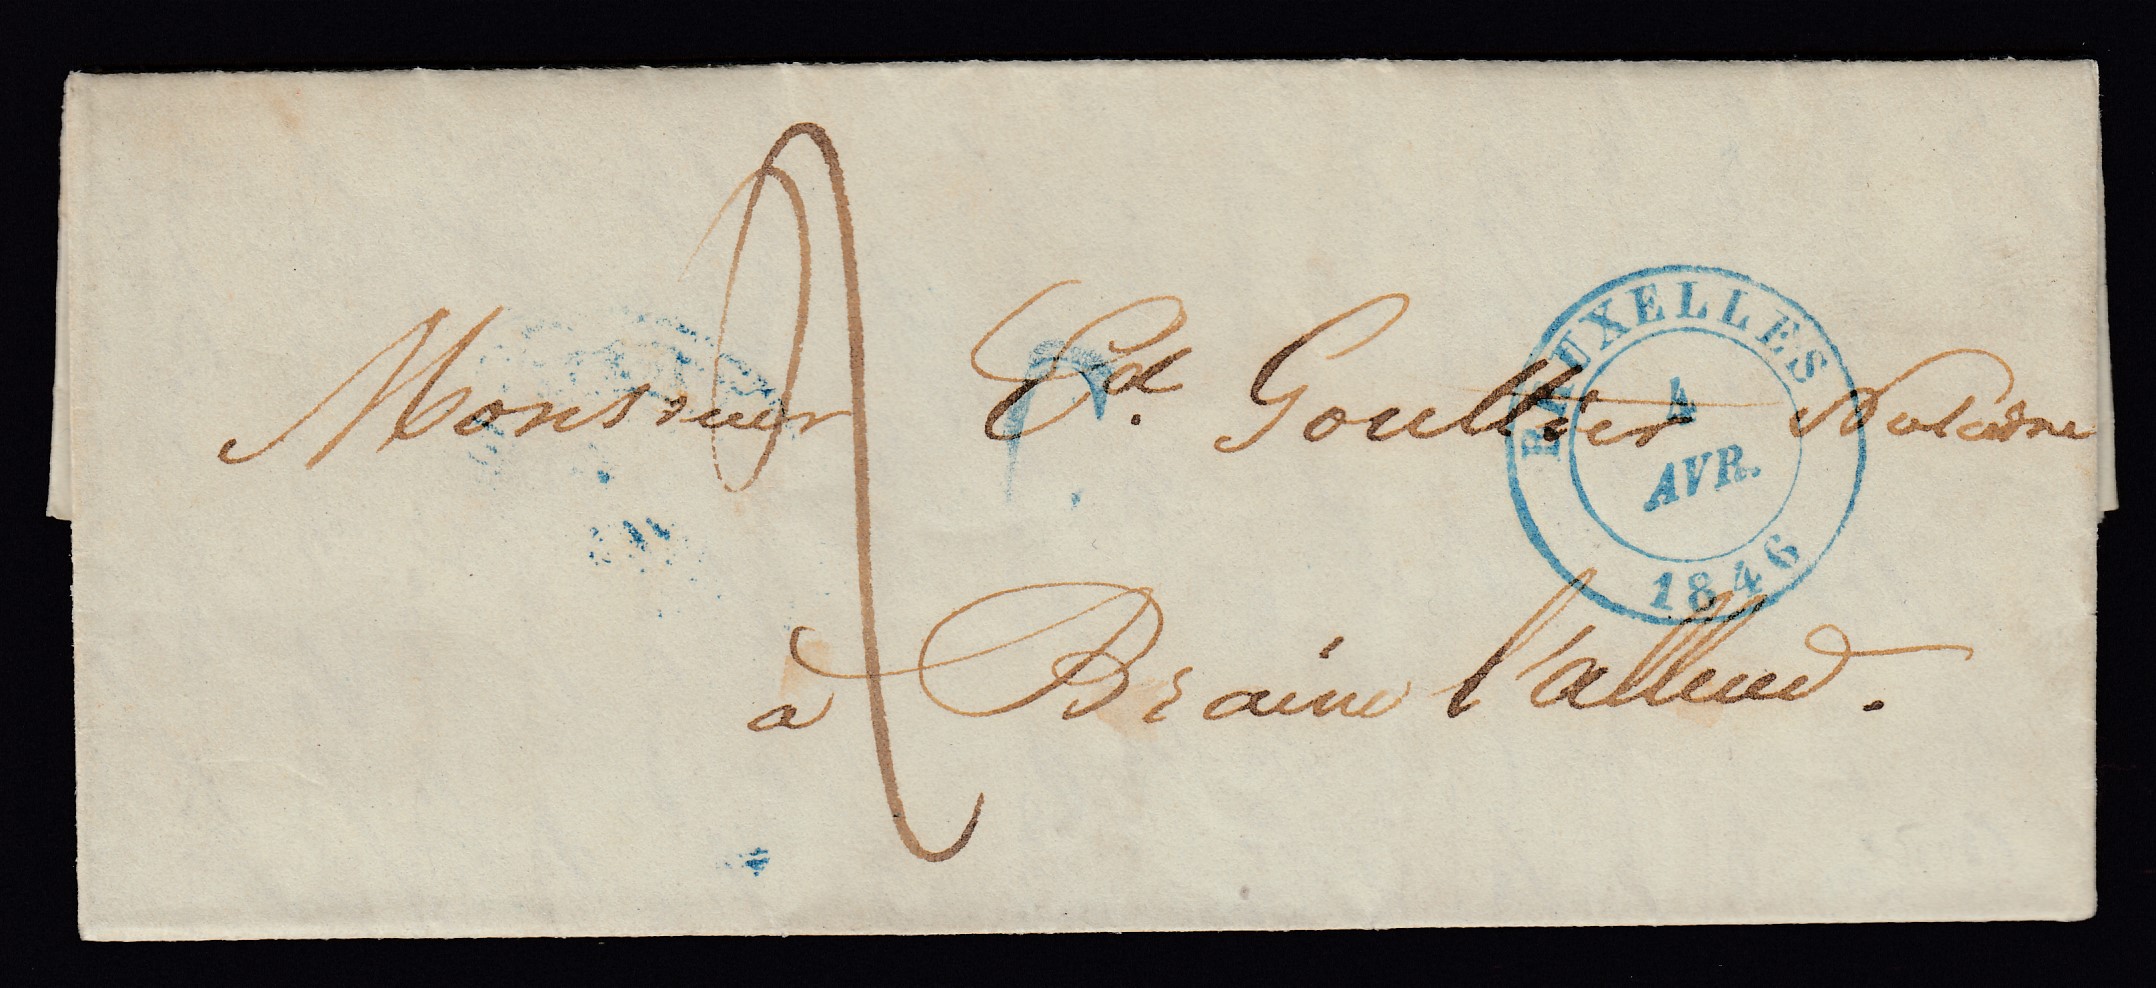 BRUXELLES
4
AVR.
1846
2
Monsieur Ed. Goultier Notaire
à Braine l'alleud.